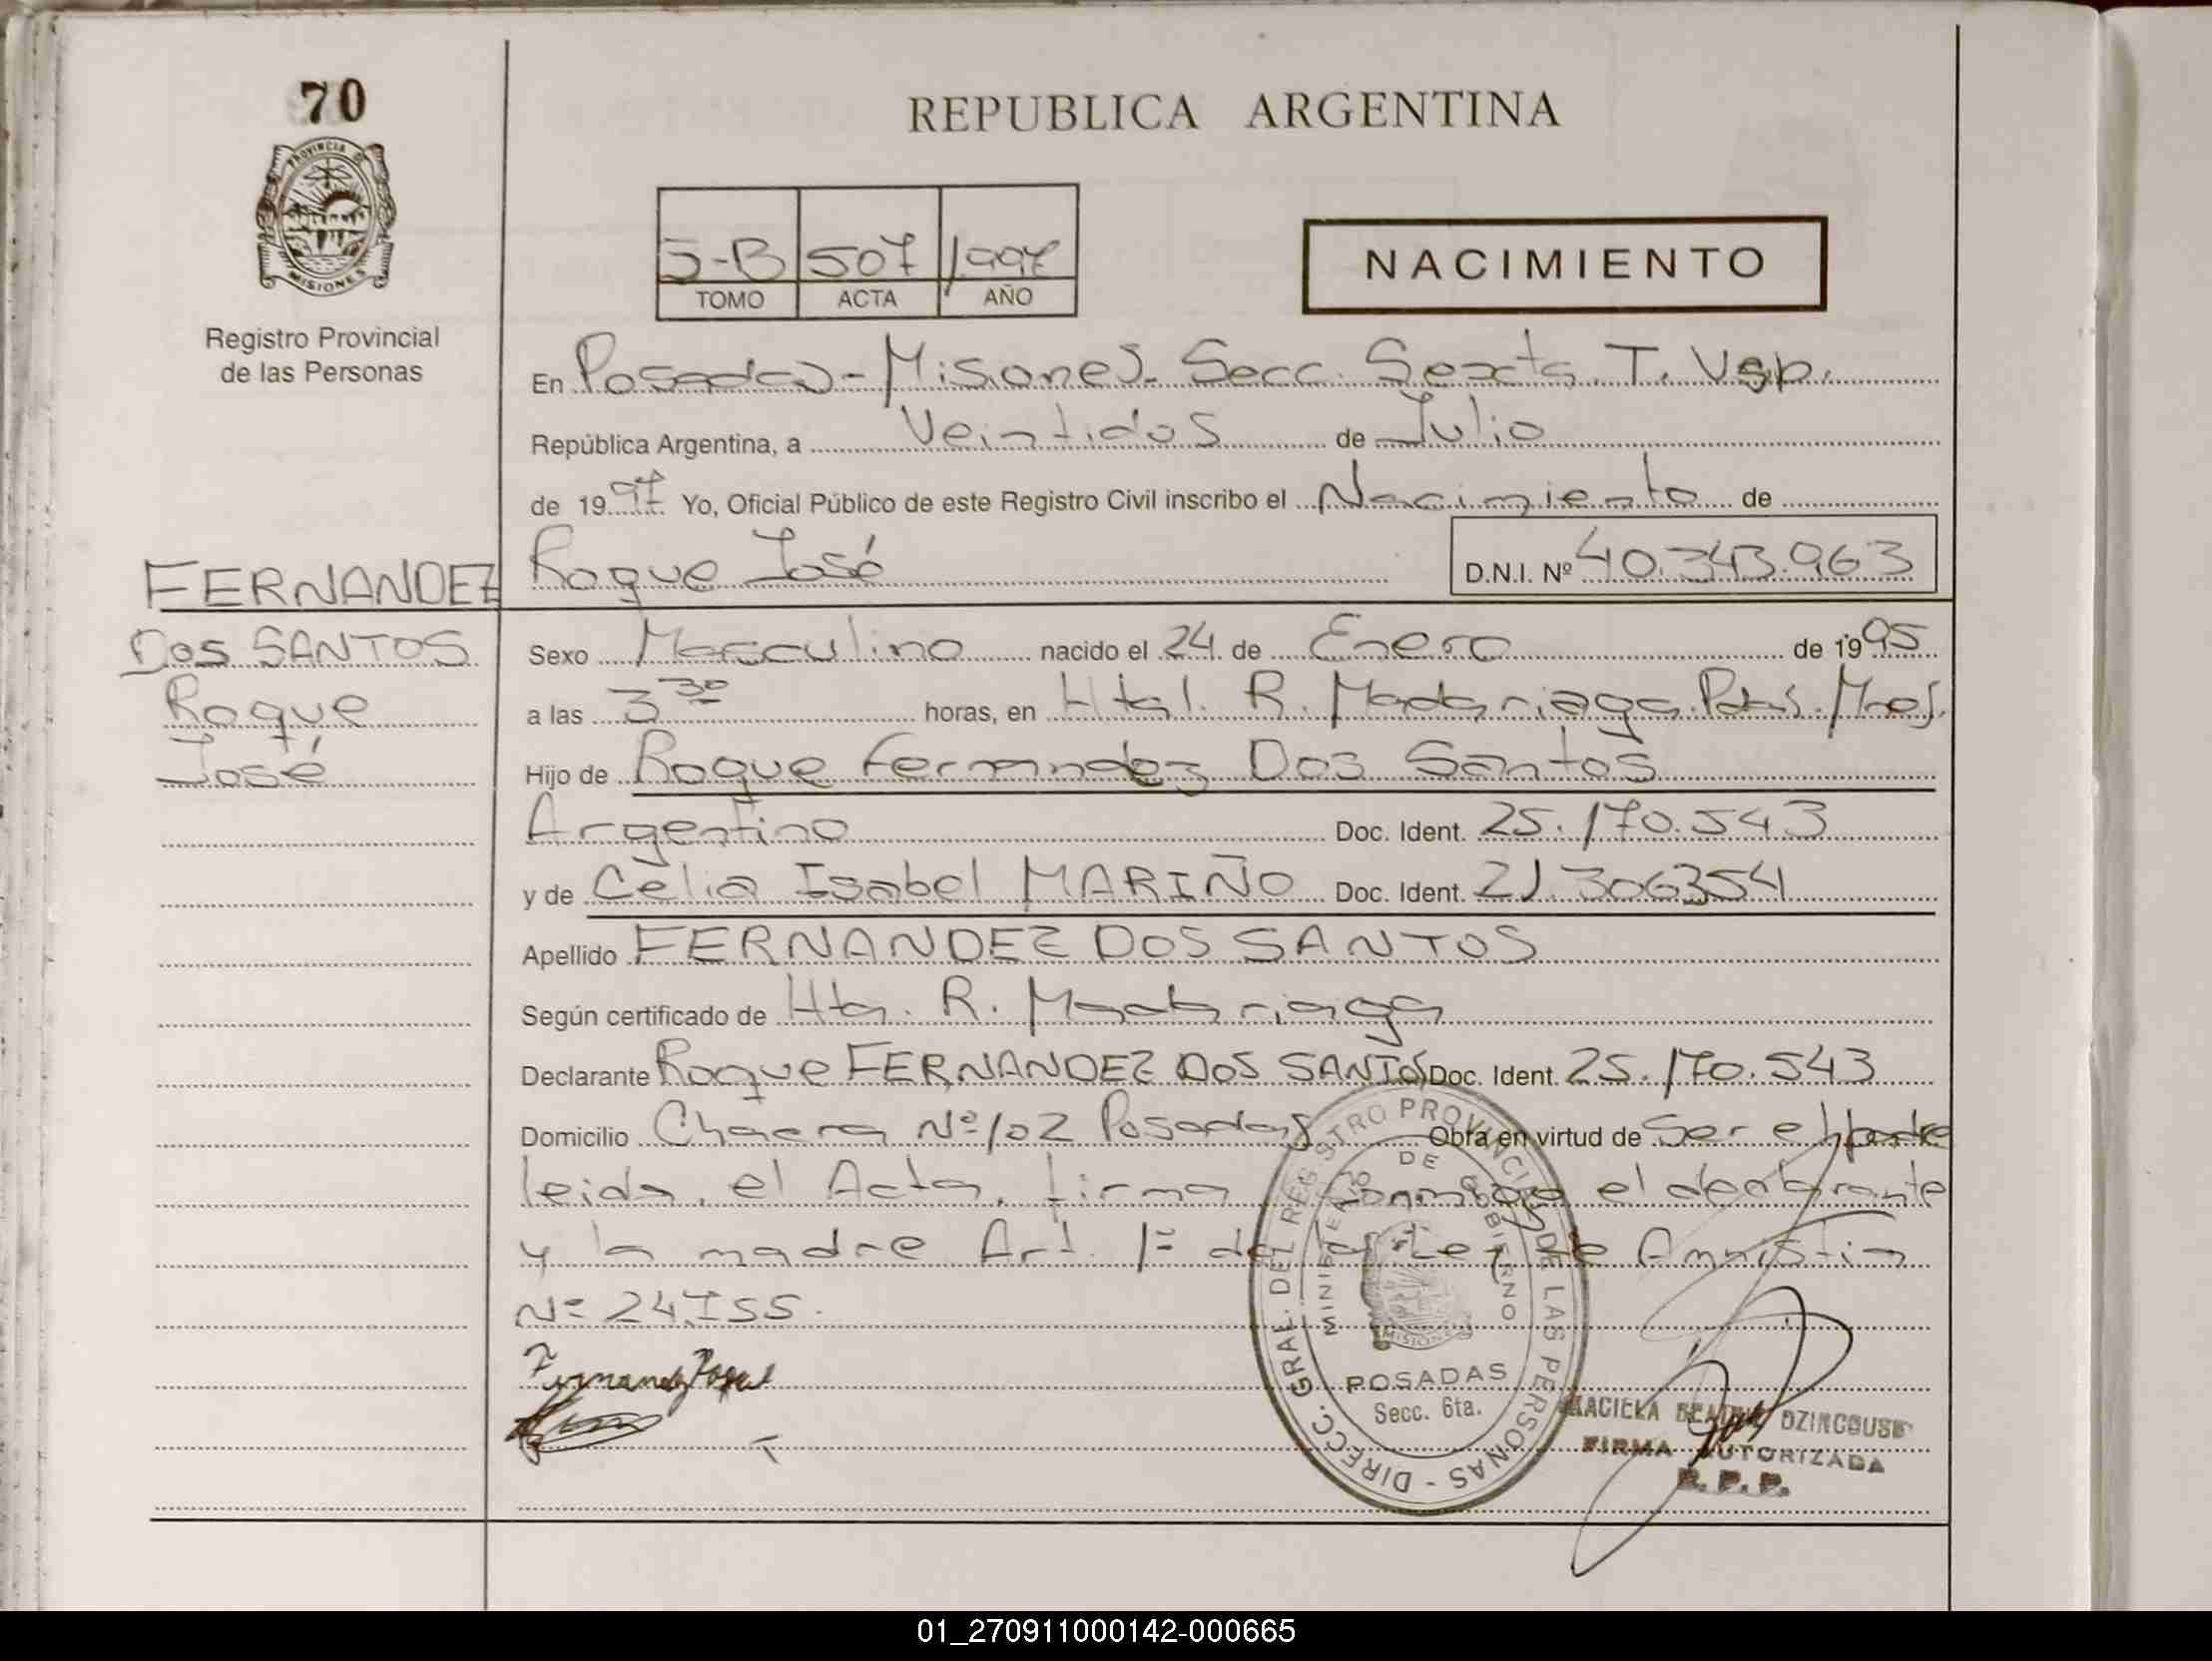 70
PROVINCIA DE
MISIONES
Registro Provincial
de las Personas
REPUBLICA ARGENTINA
5-B 507 1997
TOMO ACTA AÑO
NACIMIENTO
En Posadas - Misiones. Secc. Sexta. T. Vsp.
República Argentina, a Veintidos de Julio
de 1997 Yo, Oficial Público de este Registro Civil inscribo el Nacimiento de
Roque José D.N.I. Nº 40.343.963
FERNANDEZ
DOS SANTOS
Roque
José
Sexo Masculino nacido el 24 de Enero de 1995
a las 3 30 horas, en Htal. R. Madariaga. Pdas. Mnes.
Hijo de Roque Fernandez Dos Santos
Argentino Doc. Ident. 25.170.543
y de Celia Isabel MARIÑO Doc. Ident. 21.306354
Apellido FERNANDEZ DOS SANTOS
Según certificado de Hta. R. Madariaga
Declarante Roque FERNANDEZ DOS SANTOS Doc. Ident. 25.170.543
Domicilio Chacra Nº 102 Posadas Obra en virtud de Ser el padre
leida, el Acta, firma conmigo el declarante
y la madre Art. 1º de la Ley de Amnistia
Nº 24.755.
Fernandez Roque
DIRECC. GRAL. DEL REGISTRO PROVINCIAL DE LAS PERSONAS -
MINISTERIO DE GOBIERNO
MISIONES
POSADAS
Secc. 6ta.
BEATRIZ DZINCOUSE
FIRMA AUTORIZADA
R. P. P.
01_270911000142-000665